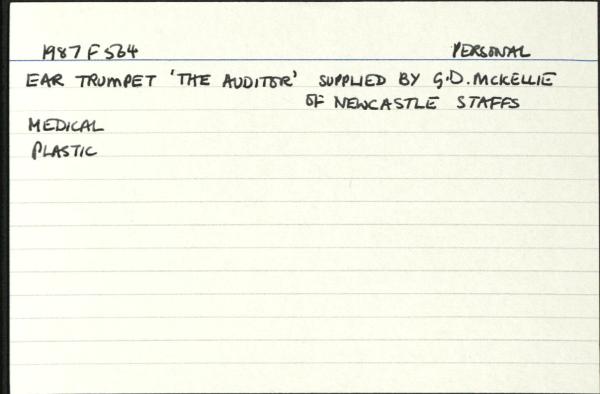 1987 F 564 PERSONAL
EAR TRUMPET 'THE AUDITOR' SUPPLIED BY G.D. MCKELLIE
OF NEWCASTLE STAFFS
MEDICAL
PLASTIC